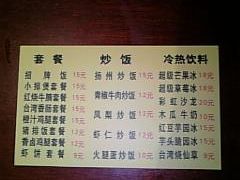 套餐
招牌饭 15元
小排煲套餐 15元
红烧牛腩套餐 15元
台湾香肠套餐 15元
橙汁鸡腿套餐 15元
猪排饭套餐 12元
香卤鸡腿套餐 12元
虾饼套餐 9元
炒饭
扬州炒饭 15元
青椒牛肉炒饭 12元
凤梨炒饭 12元
虾仁炒饭 12元
火腿蛋炒饭 10元
冷热饮料
超级芒果冰 18元
超级草莓冰 18元
彩虹沙龙 20元
木瓜牛奶 10元
红豆芋圆冰
芋头脆圆冰 15元
台湾烧仙草 9元